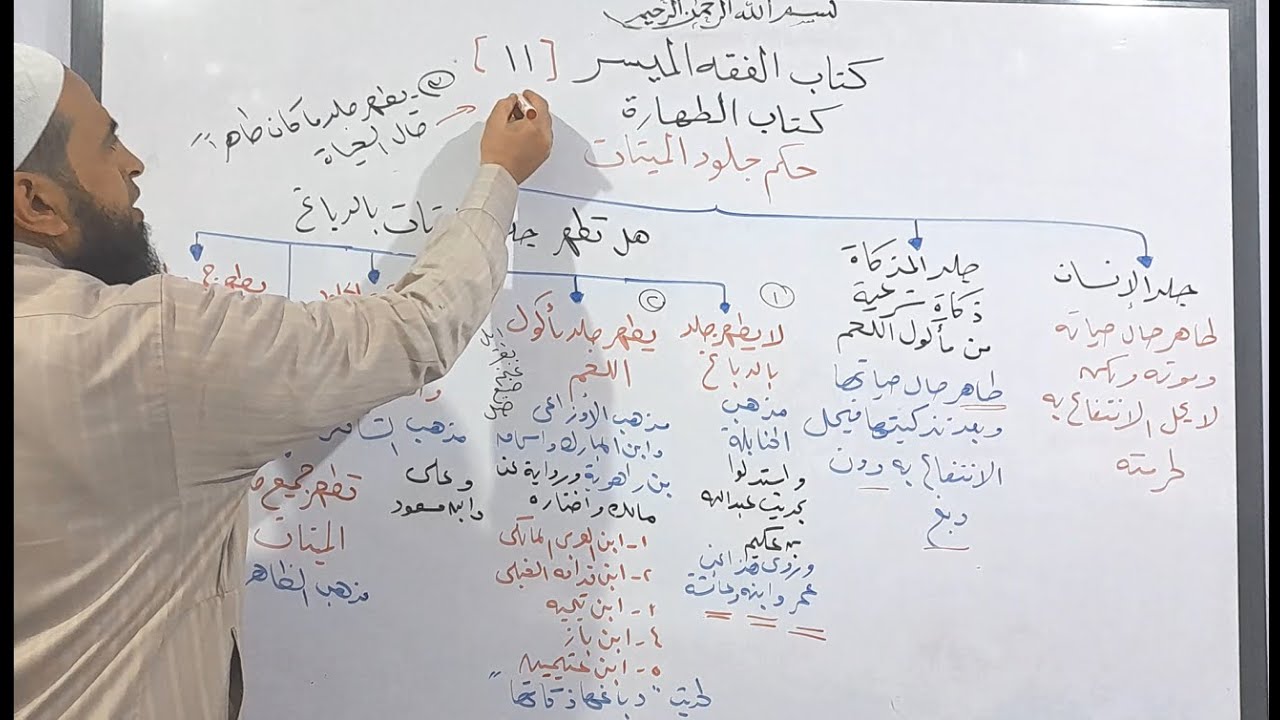 بسم الله الرحمن الرحيم
كتاب الفقه الميسر [١١]
كتاب الطهارة
حكم جلود الميتات
٣- يطهر جلد ما كان طاهرا
حال الحياة
هل تطهر جلـ ـتات بالدباغ
جلد الإنسان
طاهر حال حياته
وموته
لا يحل الانتفاع به
لحرمته
جلد المذكاة
ذكاة شرعية
من مأكول اللحم
طاهر حال حياتها
وبعد تذكيتها فيحل
الانتفاع به دون
دبغ
١
لا يطهر جلد
بالدباغ
مذهب
الحنابلة
واستدلوا
بحديث عبدالله
بن عكيم
وروى هذا عن
عمر وابنه وعائشة
٢
يطهر جلد مأكول
اللحم
مذهب الأوزاعى
وابن المبارك واسحاق
بن راهوية ورواية عن
مالك واختاره
١- ابن العربى المالكى
٢- ابن قدامة الحنبلى
٣- ابن تيمية
٤- ابن باز
٥- ابن عثيمين
لحديث "دباغها ذكاتها"
مذهب الشافـ
وعلى
وابن مسعود
يطهر جـ
تطهر جميع
الميتات
مذهب الظاهر